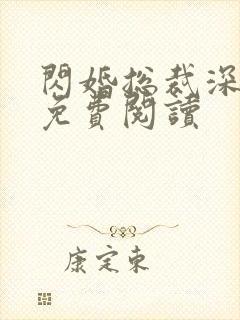 閃婚总裁深
免費閱讀
康定東